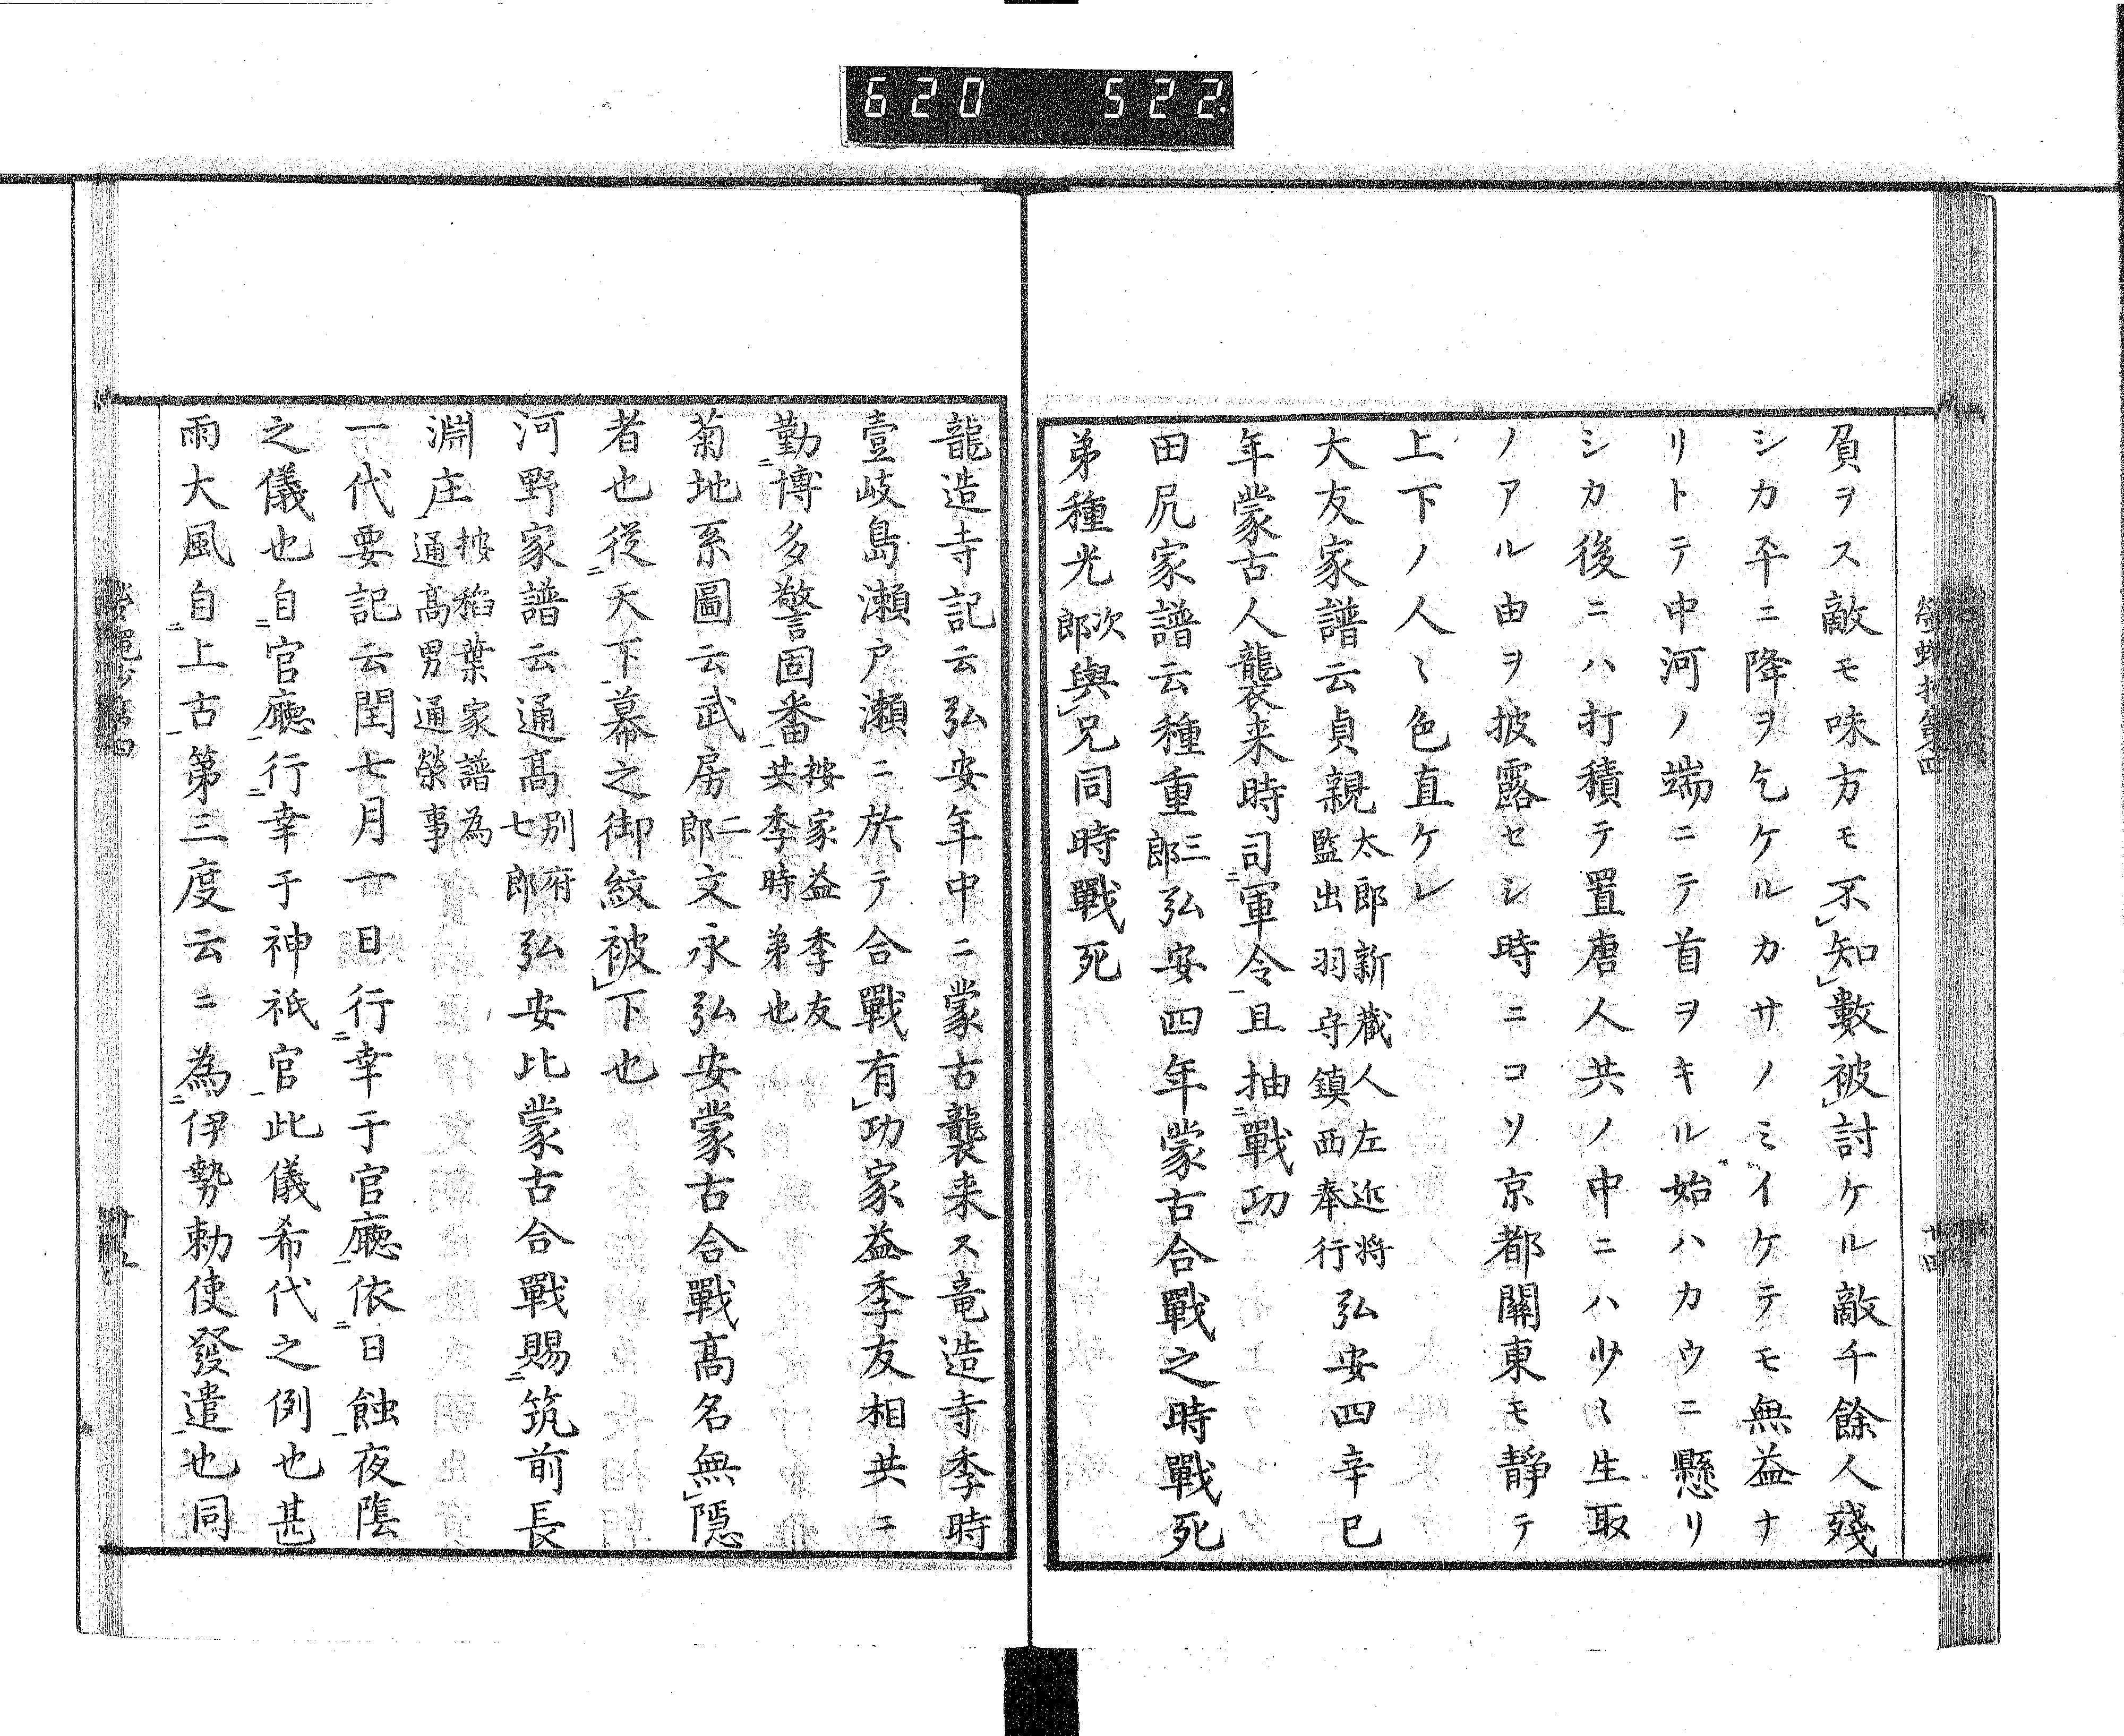 620 522.
負ヲス敵モ味方モ不知數被討ケル敵千餘人殘
シカ平ニ降ヲ乞ケルカサノミイケテモ無益ナ
リトテ中河ノ端ニテ首ヲキル始ハカウニ懸リ
シカ後ニハ打積テ置唐人共ノ中ニハ少〻生取
ノアル由ヲ披露セシ時ニコソ京都關東モ靜テ
上下ノ人〻色直ケレ
大友家譜云貞親太郎新蔵人左近将監出羽守鎮西奉行弘安四辛巳
年蒙古人襲来時司軍令且抽戰功
田尻家譜云種重三郎弘安四年蒙古合戰之時戰死
弟種光次郎與兄同時戰死
龍造寺記云弘安年中ニ蒙古襲来ス竜造寺季時
壹岐島瀬戸瀬ニ於テ合戰有功家益季友相共ニ
勤博多警固番按家益季友共季時弟也
菊地系圖云武房二郎文永弘安蒙古合戰髙名無隱
者也從天下幕之御紋被下也
河野家譜云通髙別府七郎弘安比蒙古合戰賜筑前長
淵庄按稻葉家譜為通髙男通榮事
一代要記云閏七月一日行幸于官廳依日蝕夜陰
之儀也自官廳行幸于神祇官此儀希代之例也甚
雨大風自上古第三度云ニ為伊勢勅使發遣也同